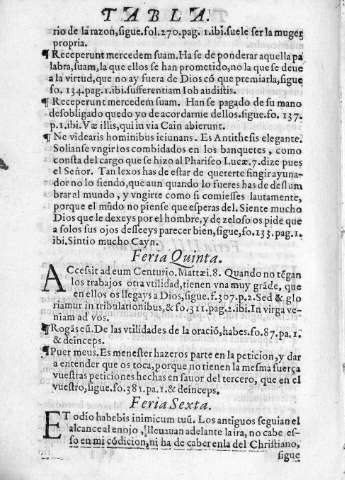 TABLA.
rio de la razon, sigue. fol. 270. pag. 1. ibi. suele ser la muger
propria.
¶ Receperunt mercedem suam. Ha se de ponderar aquella pa
labra, suam, la que ellos se han prometido, no la que se deue
a la virtud, que no ay fuera de Dios có que premiarla, sigue
fo. 134. pag. 1. ibi. sufferentiam Iob audistis.
¶ Receperunt mercedem suam. Han se pagado de su mano
desobligado quedo yo de acordarme dellos. sigue fo. 137.
p. 1. ibi. Væ illis, qui in via Cain abierunt.
¶ Ne videaris hominibus ieiunans. Es Antithesis elegante.
Solianse vngir los combidados en los banquetes, como
consta del cargo que se hizo al Phariseo Lucæ. 7. dize pues
el Señor. Tan lexos has de estar de quererte fingir ayuna-
dor no lo siendo, que aun quando lo fueres has de deslum
brar al mundo, y vngirte como si comiesses lautamente,
porque el műdo no piense que esperas del. Siente mucho
Dios que le dexeys por el hombre, y de zeloso os pide que
a solos sus ojos desseeys parecer bien, sigue, fo. 133. pag. 1.
ibi, Sintio mucho Cayn.
Feria Quinta.
ACcessit ad eum Centurio. Mattæi. 8. Quando no tégan
los trabajos otra vtilidad, tienen vna muy gráde, que
en ellos os llegays a Dios, sigue. f. 307. p. 2. Sed & glo
riamur in tribulationibus, & fo. 311. pag. 2. ibi. In virga ve-
niam ad vos.
¶ Rogás eũ. De las vtilidades de la oració, habes. fo. 87. pa. 1.
& deinceps.
¶ Puer meus. Es menester hazeros parte en la peticion, y dar
a entender que os toca, porque no tienen la mesma fuerça
vuestras peticiones hechas en fauor del tercero, que en el
vuestro, sigue. fo. 381. pa. 1. & deinceps.
Feria Sexta.
ET odio habebis inimicum tuũ. Los antiguos seguian el
alcance al enojo, lleuauan adelante la ira, no cabe es-
so en mi códicion, ni ha de caber en la del Christiano,
sigue